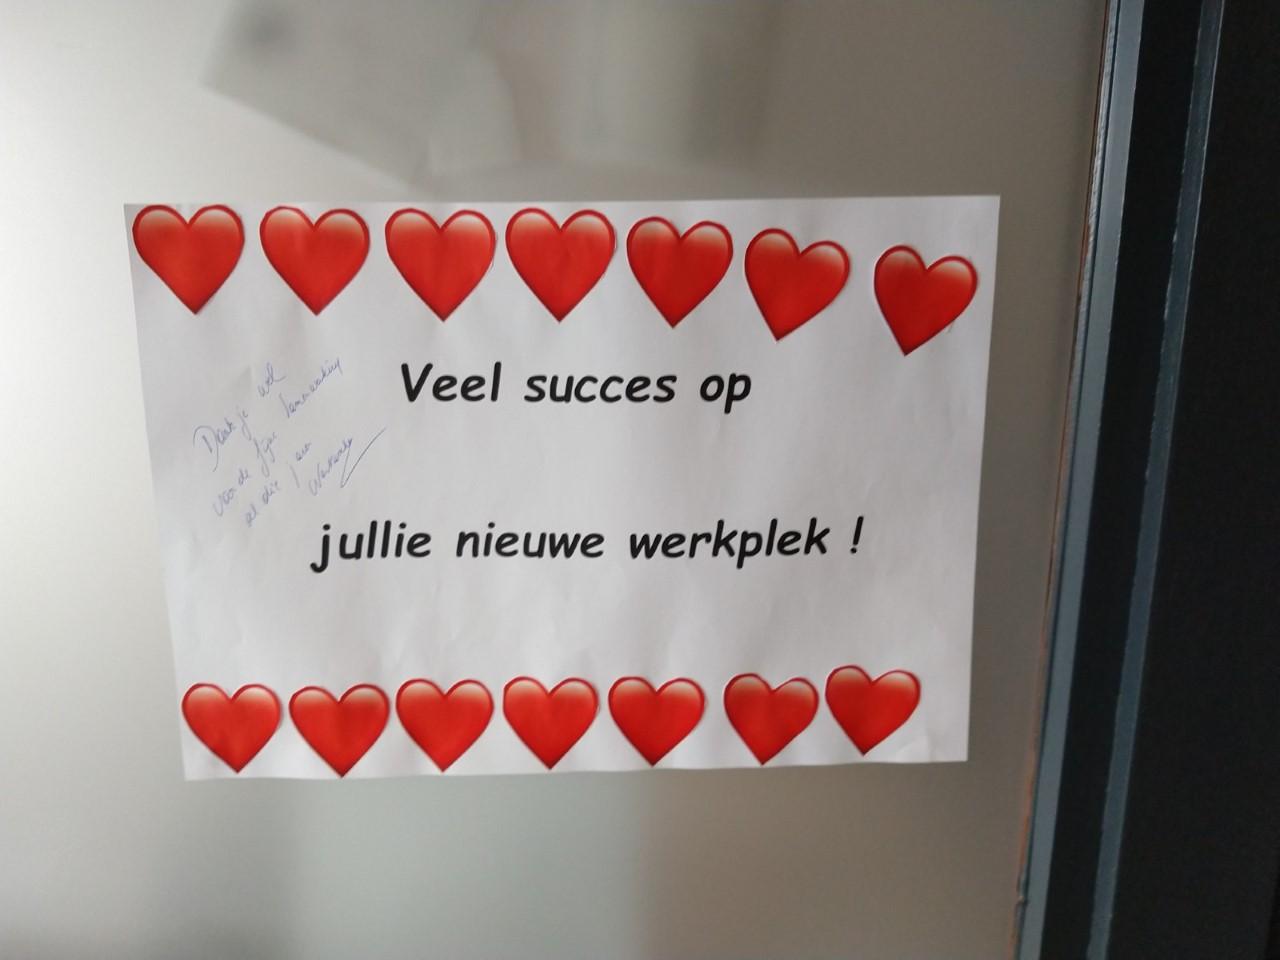 Veel succes op
jullie nieuwe werkplek !
Dank je wel
voor de fijne samenwerking
al die jaren